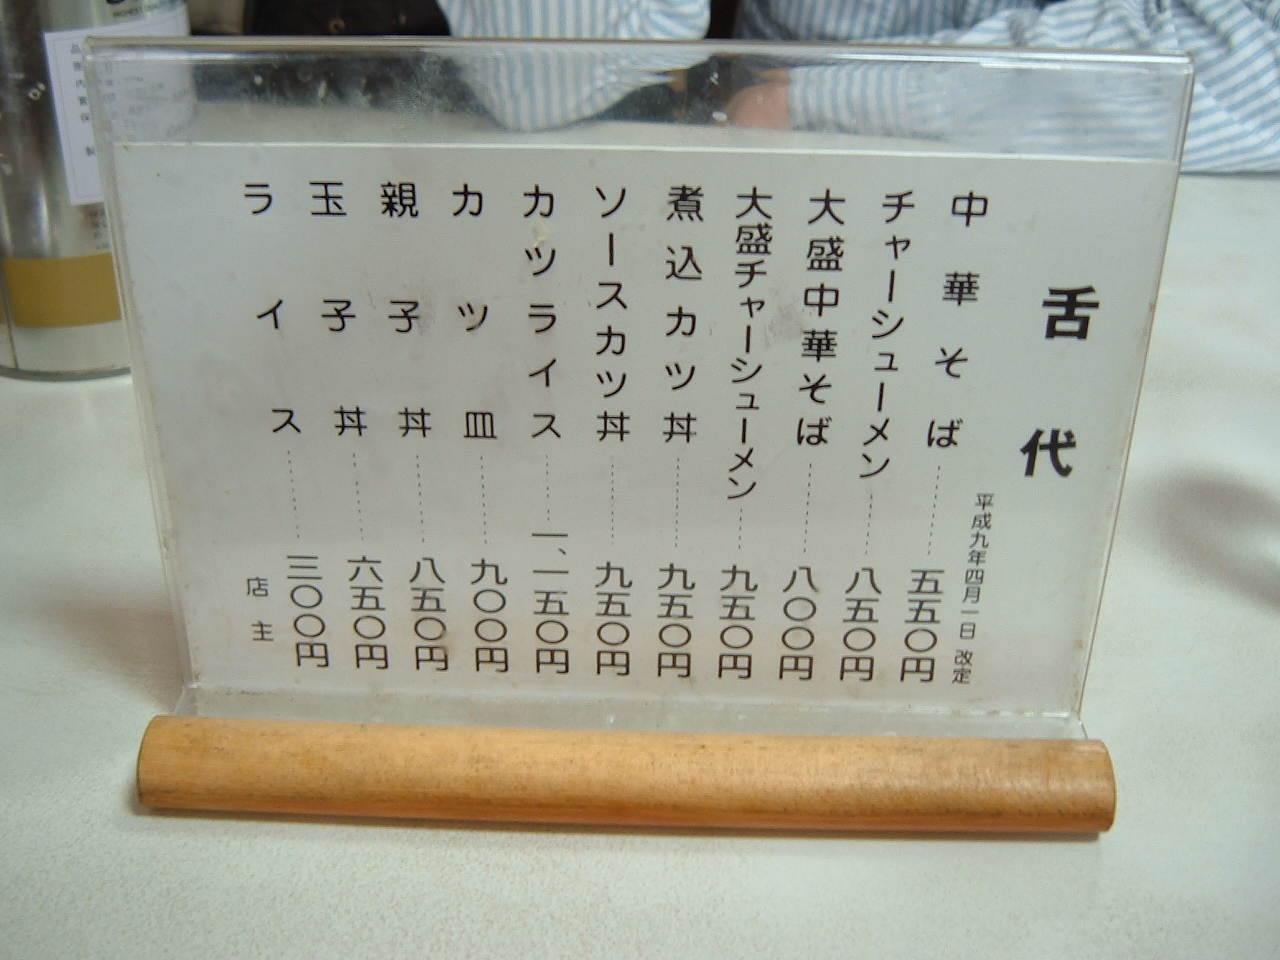 舌代
平成九年四月一日 改定
中華そば……五五〇円
チャーシューメン……八五〇円
大盛中華そば……八〇〇円
大盛チャーシューメン……九五〇円
煮込カツ丼……九五〇円
ソースカツ丼……九五〇円
カツライス……一、一五〇円
カツ皿……九〇〇円
親子丼……八五〇円
玉子丼……六五〇円
ライス……三〇〇円
店主